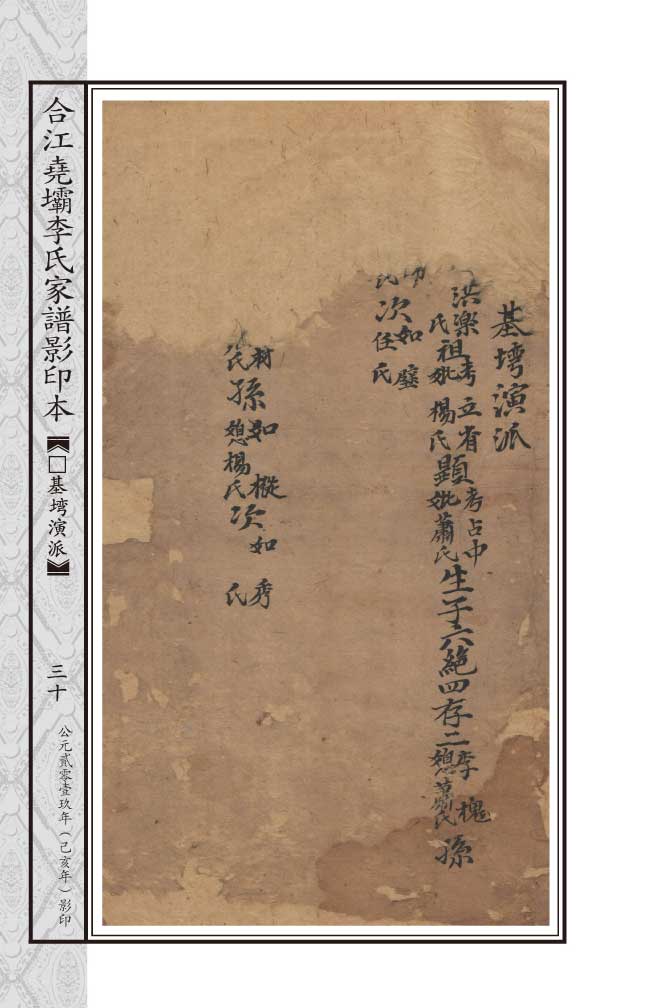 基塆演派
洪樂祖考立省顯考占中生子六絶四存二李槐孫
氏妣楊氏妣蕭氏媳蕭氏
次如璧
氏任氏
材孫如樅次如秀
氏媳楊氏氏
合江堯壩李氏家譜影印本
【□基塆演派】
三十
公元貳零壹玖年(己亥年)影印